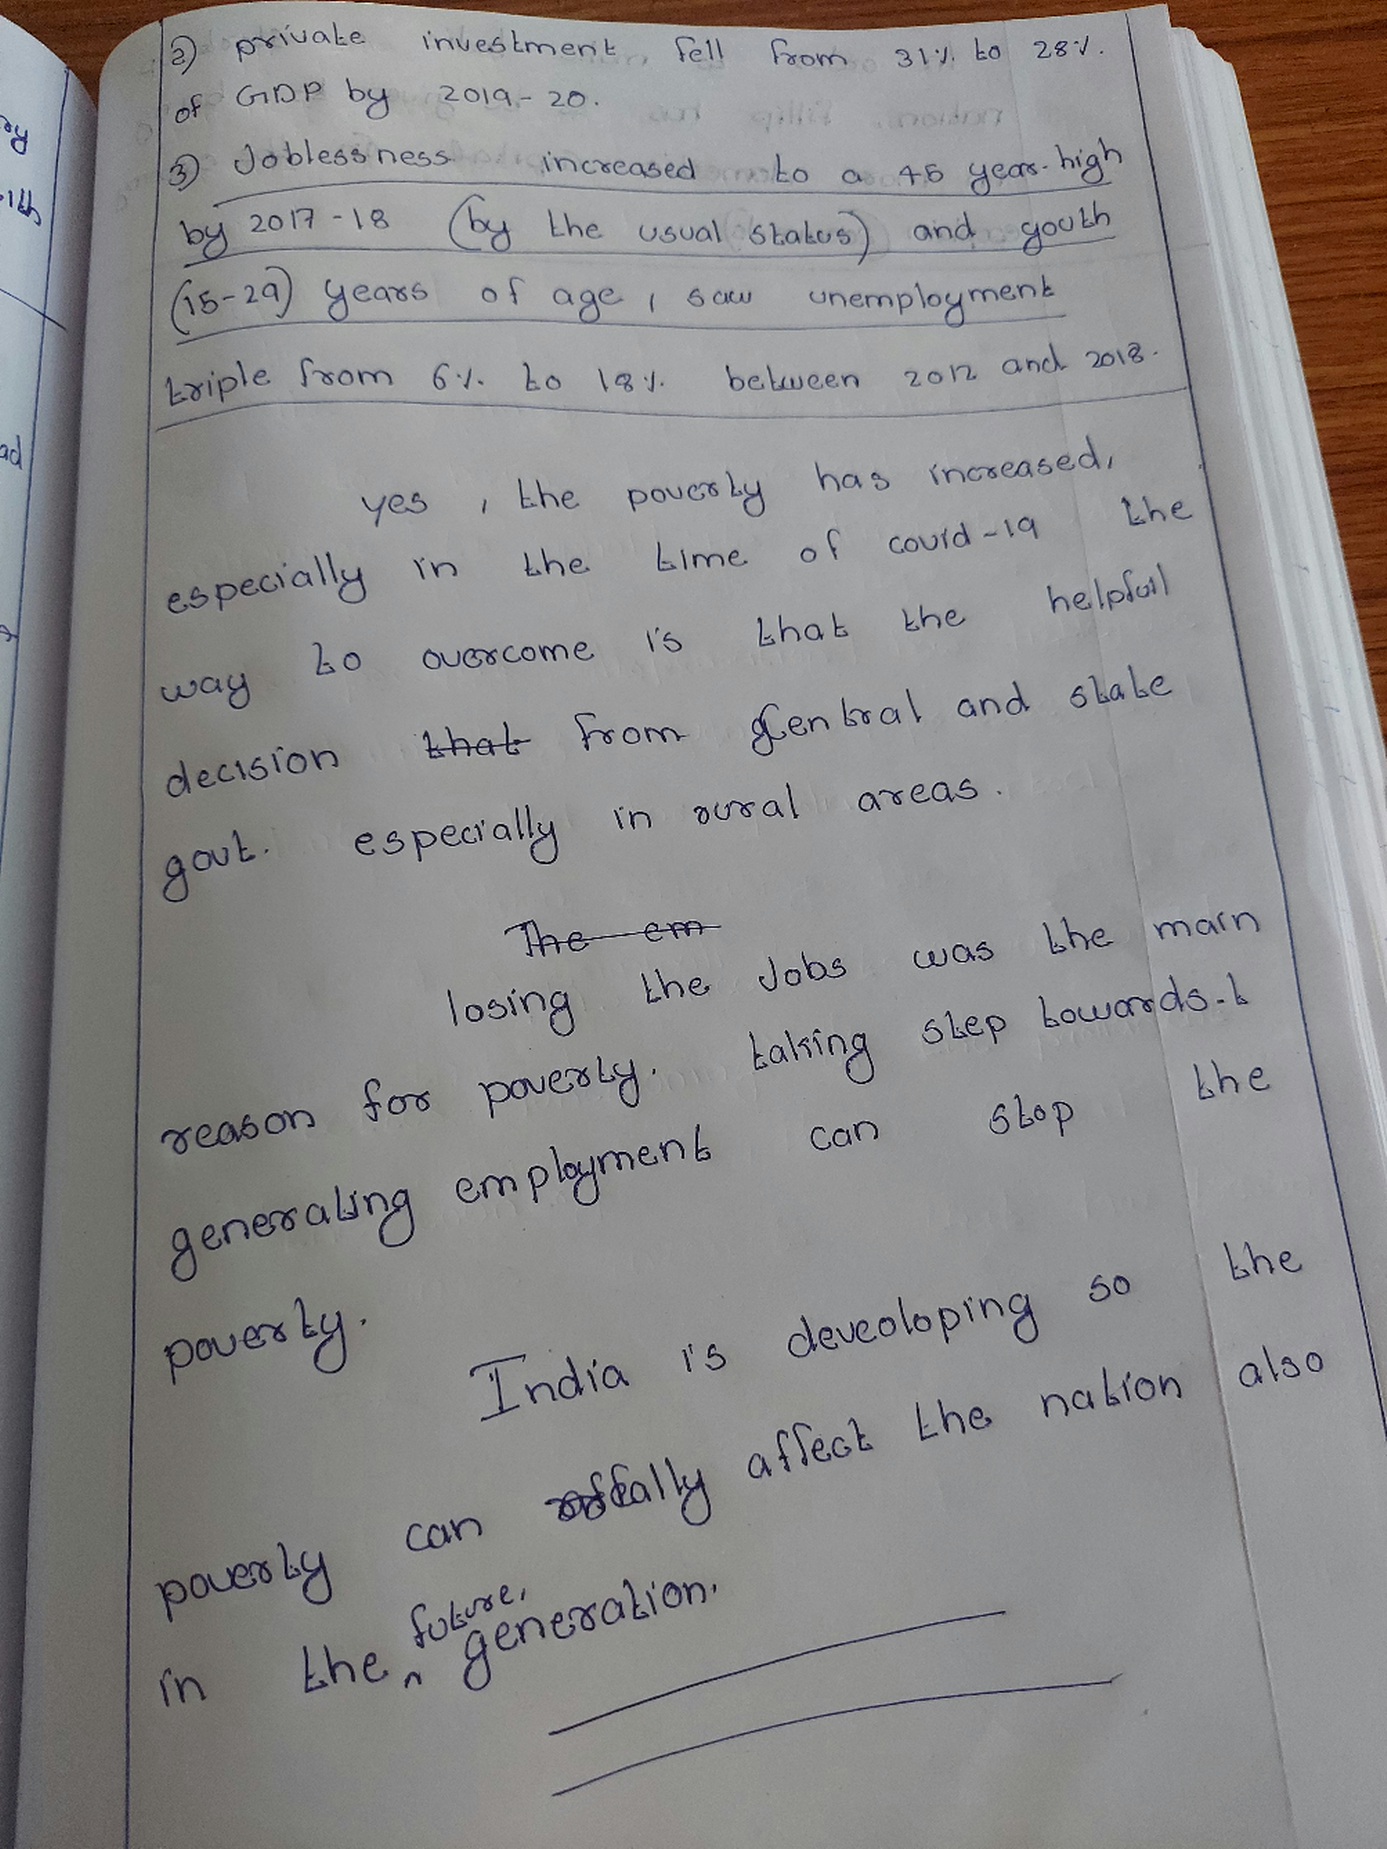 2) private investment, fell from 31% to 28%.
of GDP by 2019-20.
3) Joblessness increased to a 45 year-high
by 2017-18 (by the usual status) and youth
(15-29) years of age, saw unemployment
triple from 6% to 18% between 2012 and 2018.
yes, the poverty has increased,
especially in the time of covid-19 the
way to overcome is that the helpfull
decision that from Central and state
govt. especially in rural areas.
The em
losing the Jobs was the main
reason for poverty. taking step towards-t
generating employment can stop the
poverty.
India is deveoloping so the
poverty can affect the nation also
in the future, generation.